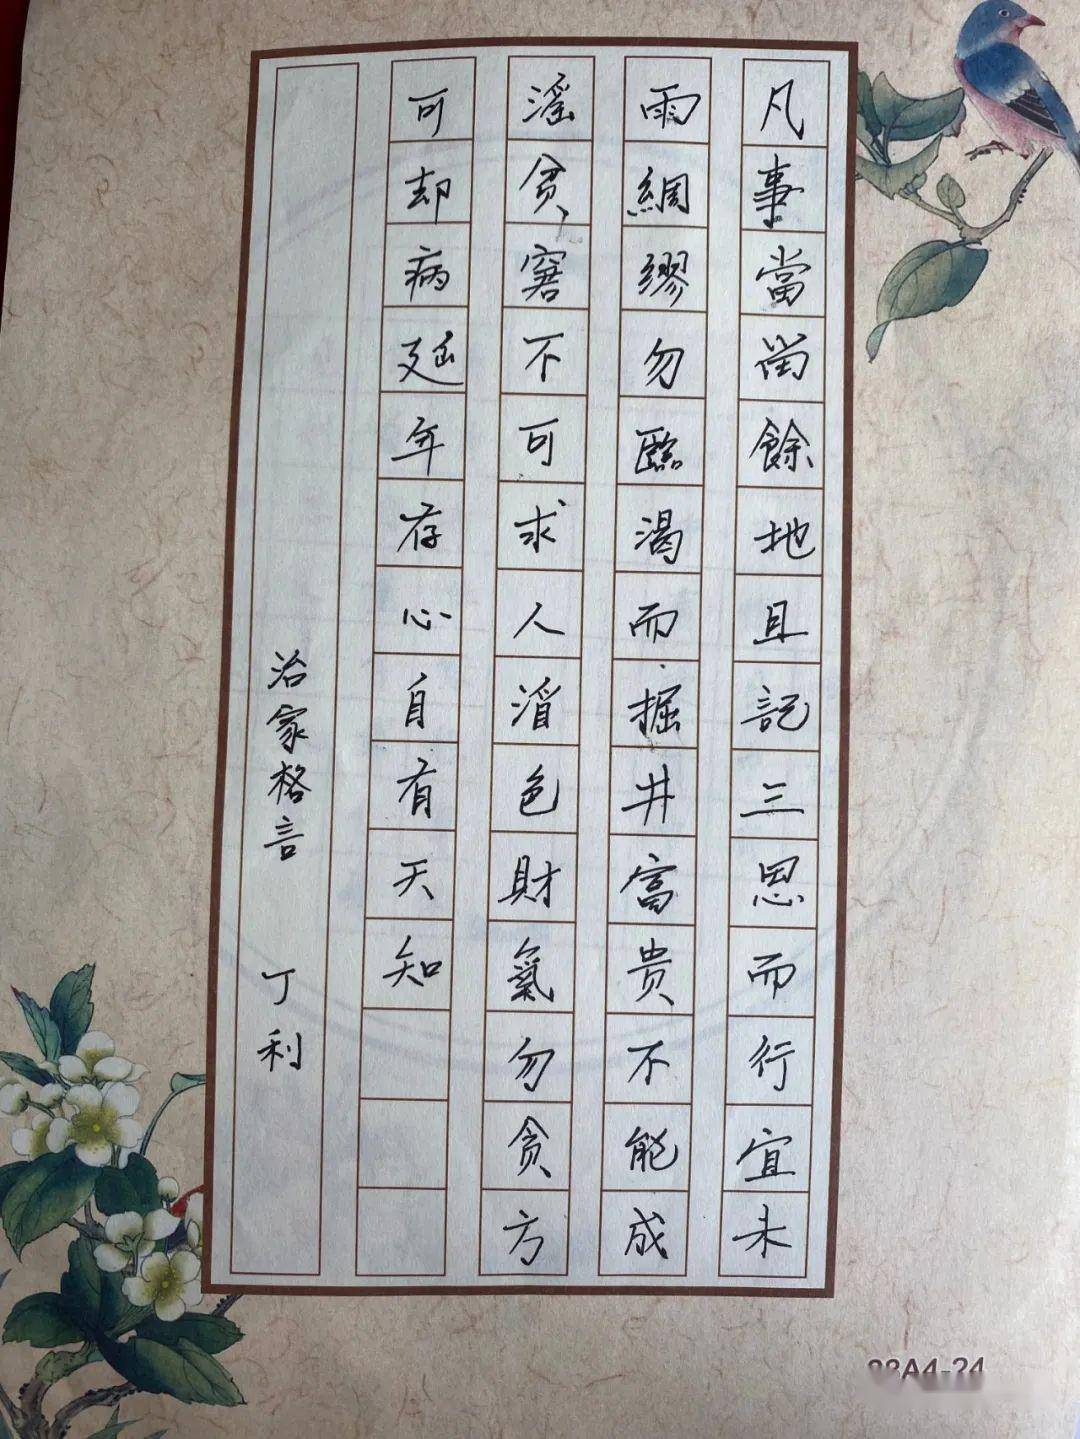 凡事當留餘地且記三思而行宜未
雨綢繆勿臨渴而掘井富贵不能成
滛贫窘不可求人酒色財氣勿贪方
可却病延年存心自有天知
治家格言 丁利